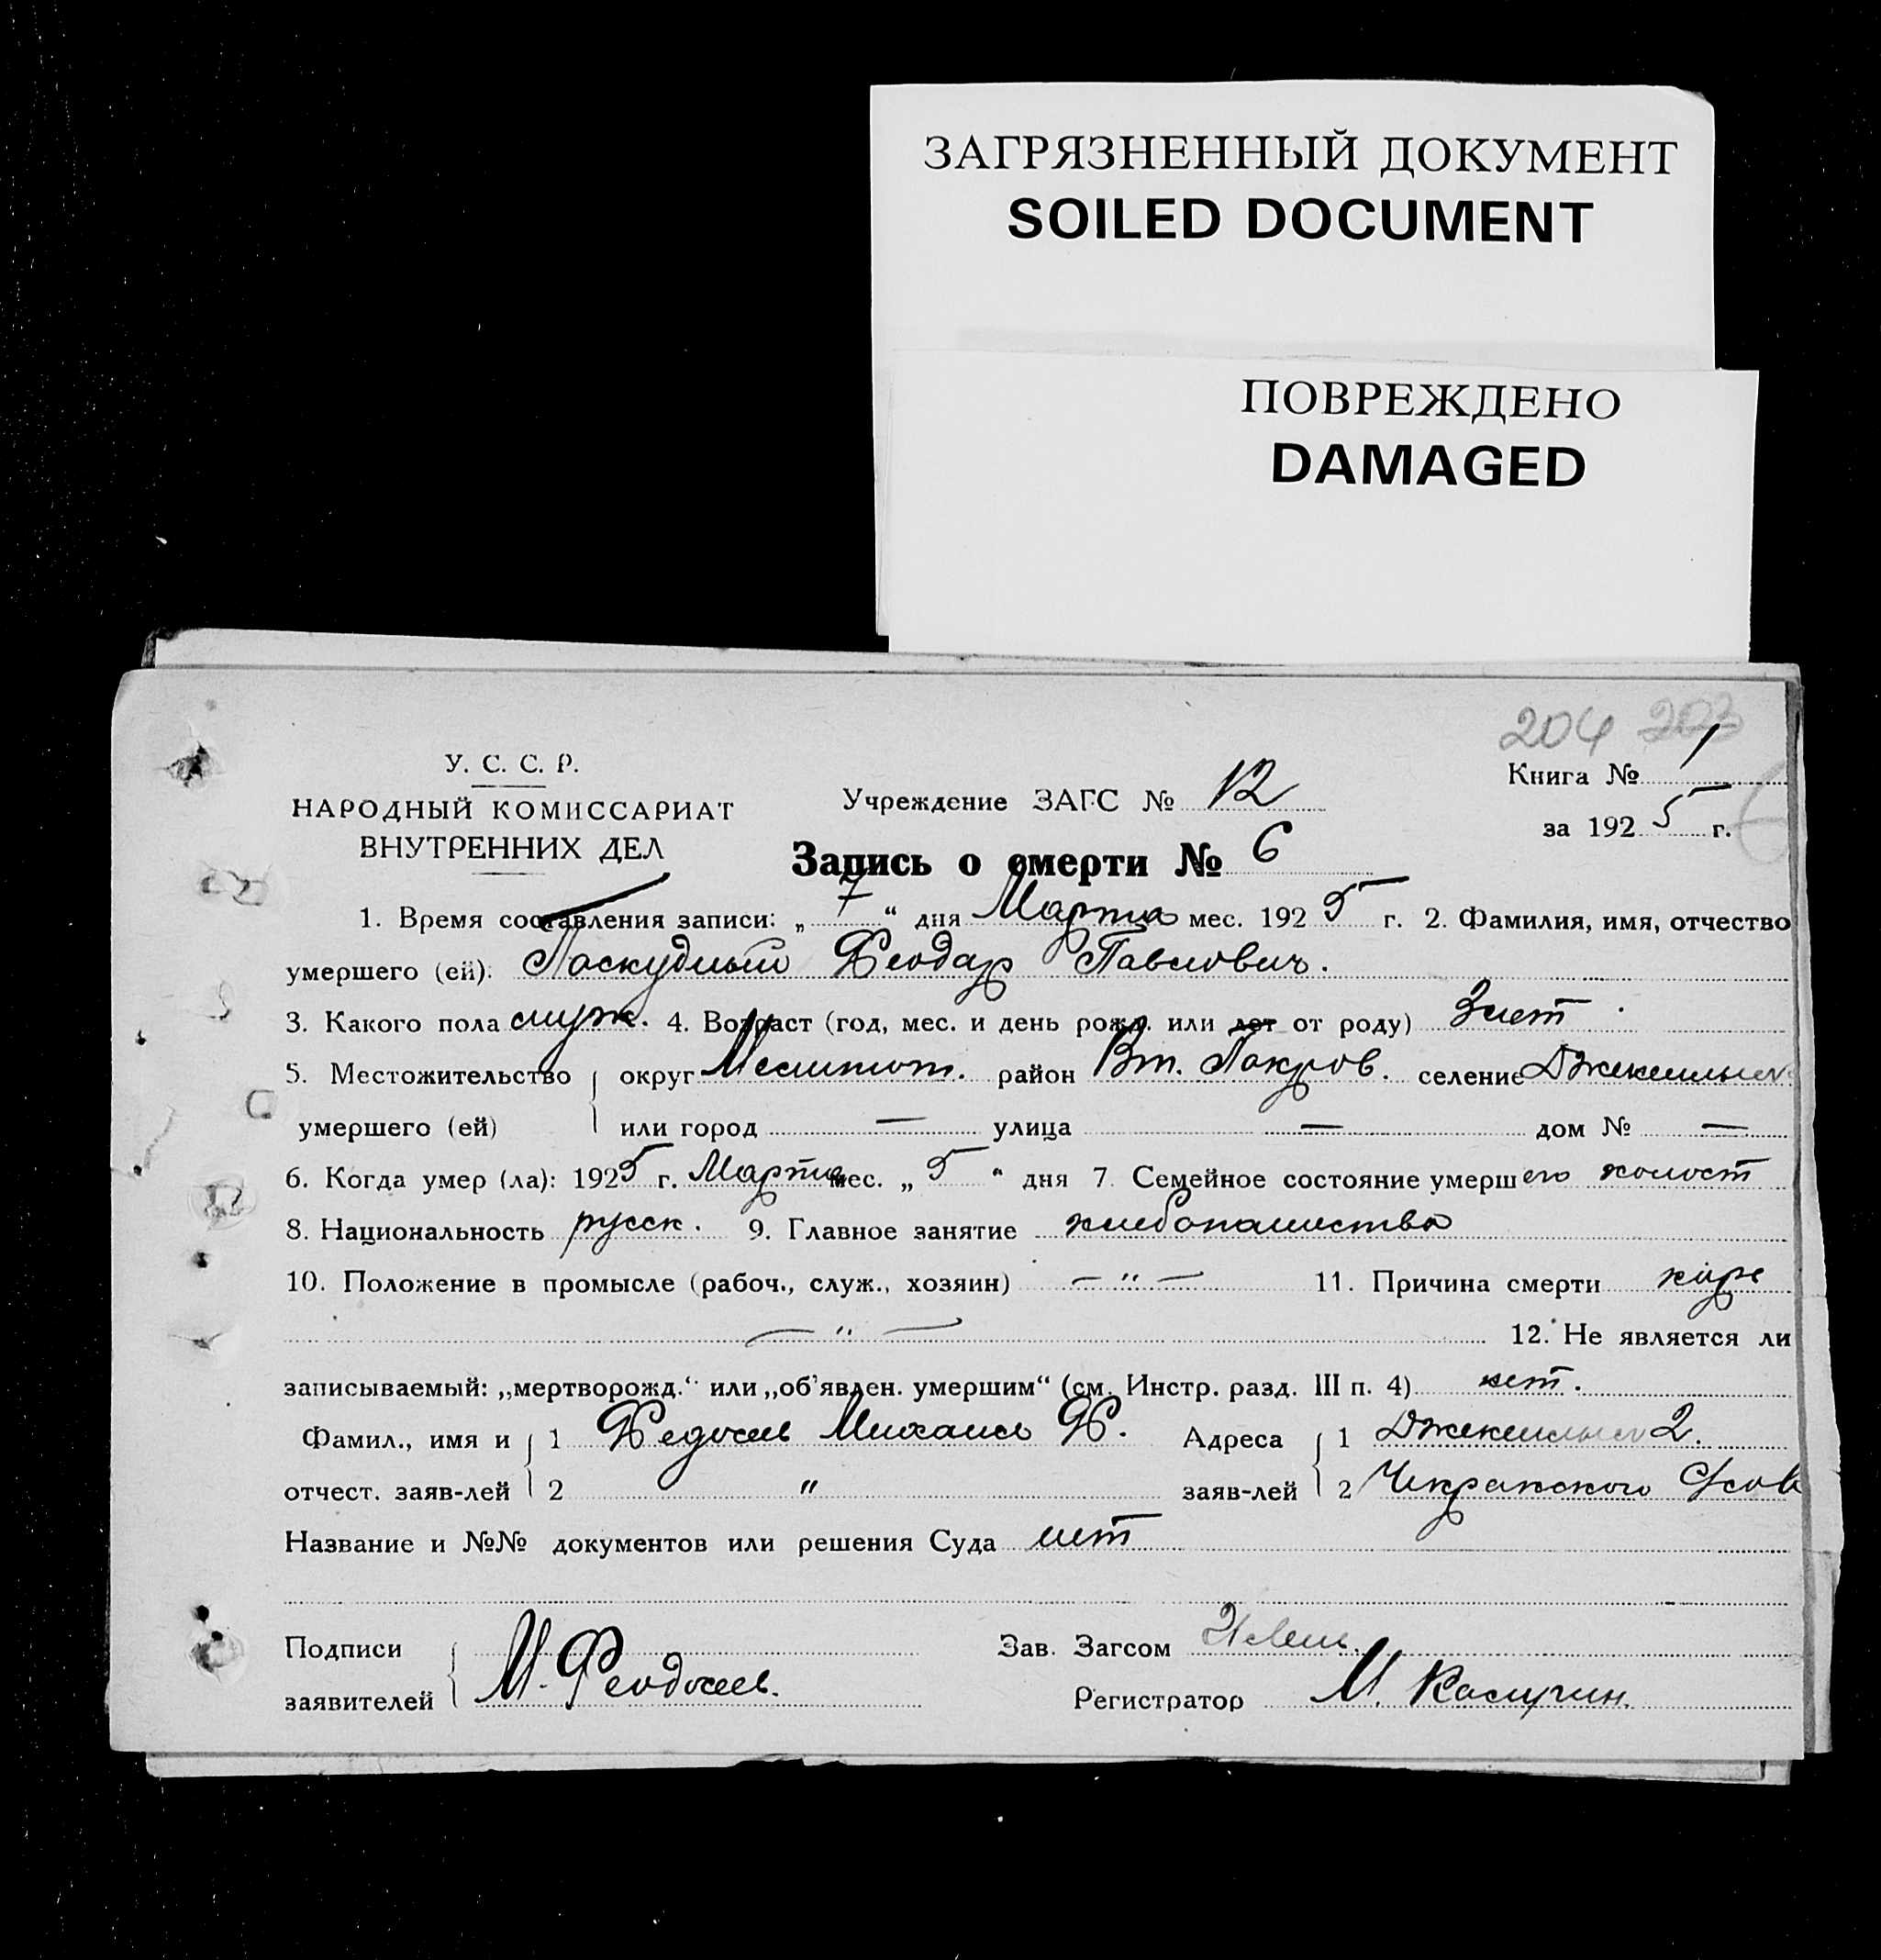 ЗАГРЯЗНЕННЫЙ ДОКУМЕНТ
SOILED DOCUMENT
ПОВРЕЖДЕНО
DAMAGED
204 203
У. С. С. Р.
НАРОДНЫЙ КОМИССАРИАТ
ВНУТРЕННИХ ДЕЛ
Учреждение ЗАГС № 12
Книга № 1
за 1925 г.
Запись о смерти № 6
1. Время составления записи: „7“ дня Марта мес. 1925 г. 2. Фамилия, имя, отчество
умершего (ей): Паскудный Феодар Павлович.
3. Какого пола муж. 4. Возраст (год, мес. и день рожд. или лет от роду) 3 лет
5. Местожительство округ Мелитоп. район Вт. Покров. селение
умершего (ей) или город — улица — дом № —
6. Когда умер (ла): 1925 г. Марта мес. „5“ дня 7. Семейное состояние умершего холост
8. Национальность русск. 9. Главное занятие хлебопашество
10. Положение в промысле (рабоч., служ., хозяин) — " — 11. Причина смерти
— " — 12. Не является ли
записываемый: „мертворожд.“ или „об'явлен. умершим“ (см. Инстр. разд. III п. 4) нет.
Фамил., имя и 1 Михаил Ф. Адреса 1 2.
отчест. заяв-лей 2 " заяв-лей 2 Чекракского
Название и №№ документов или решения Суда нет
Подписи Зав. Загсом
заявителей М. Регистратор М.